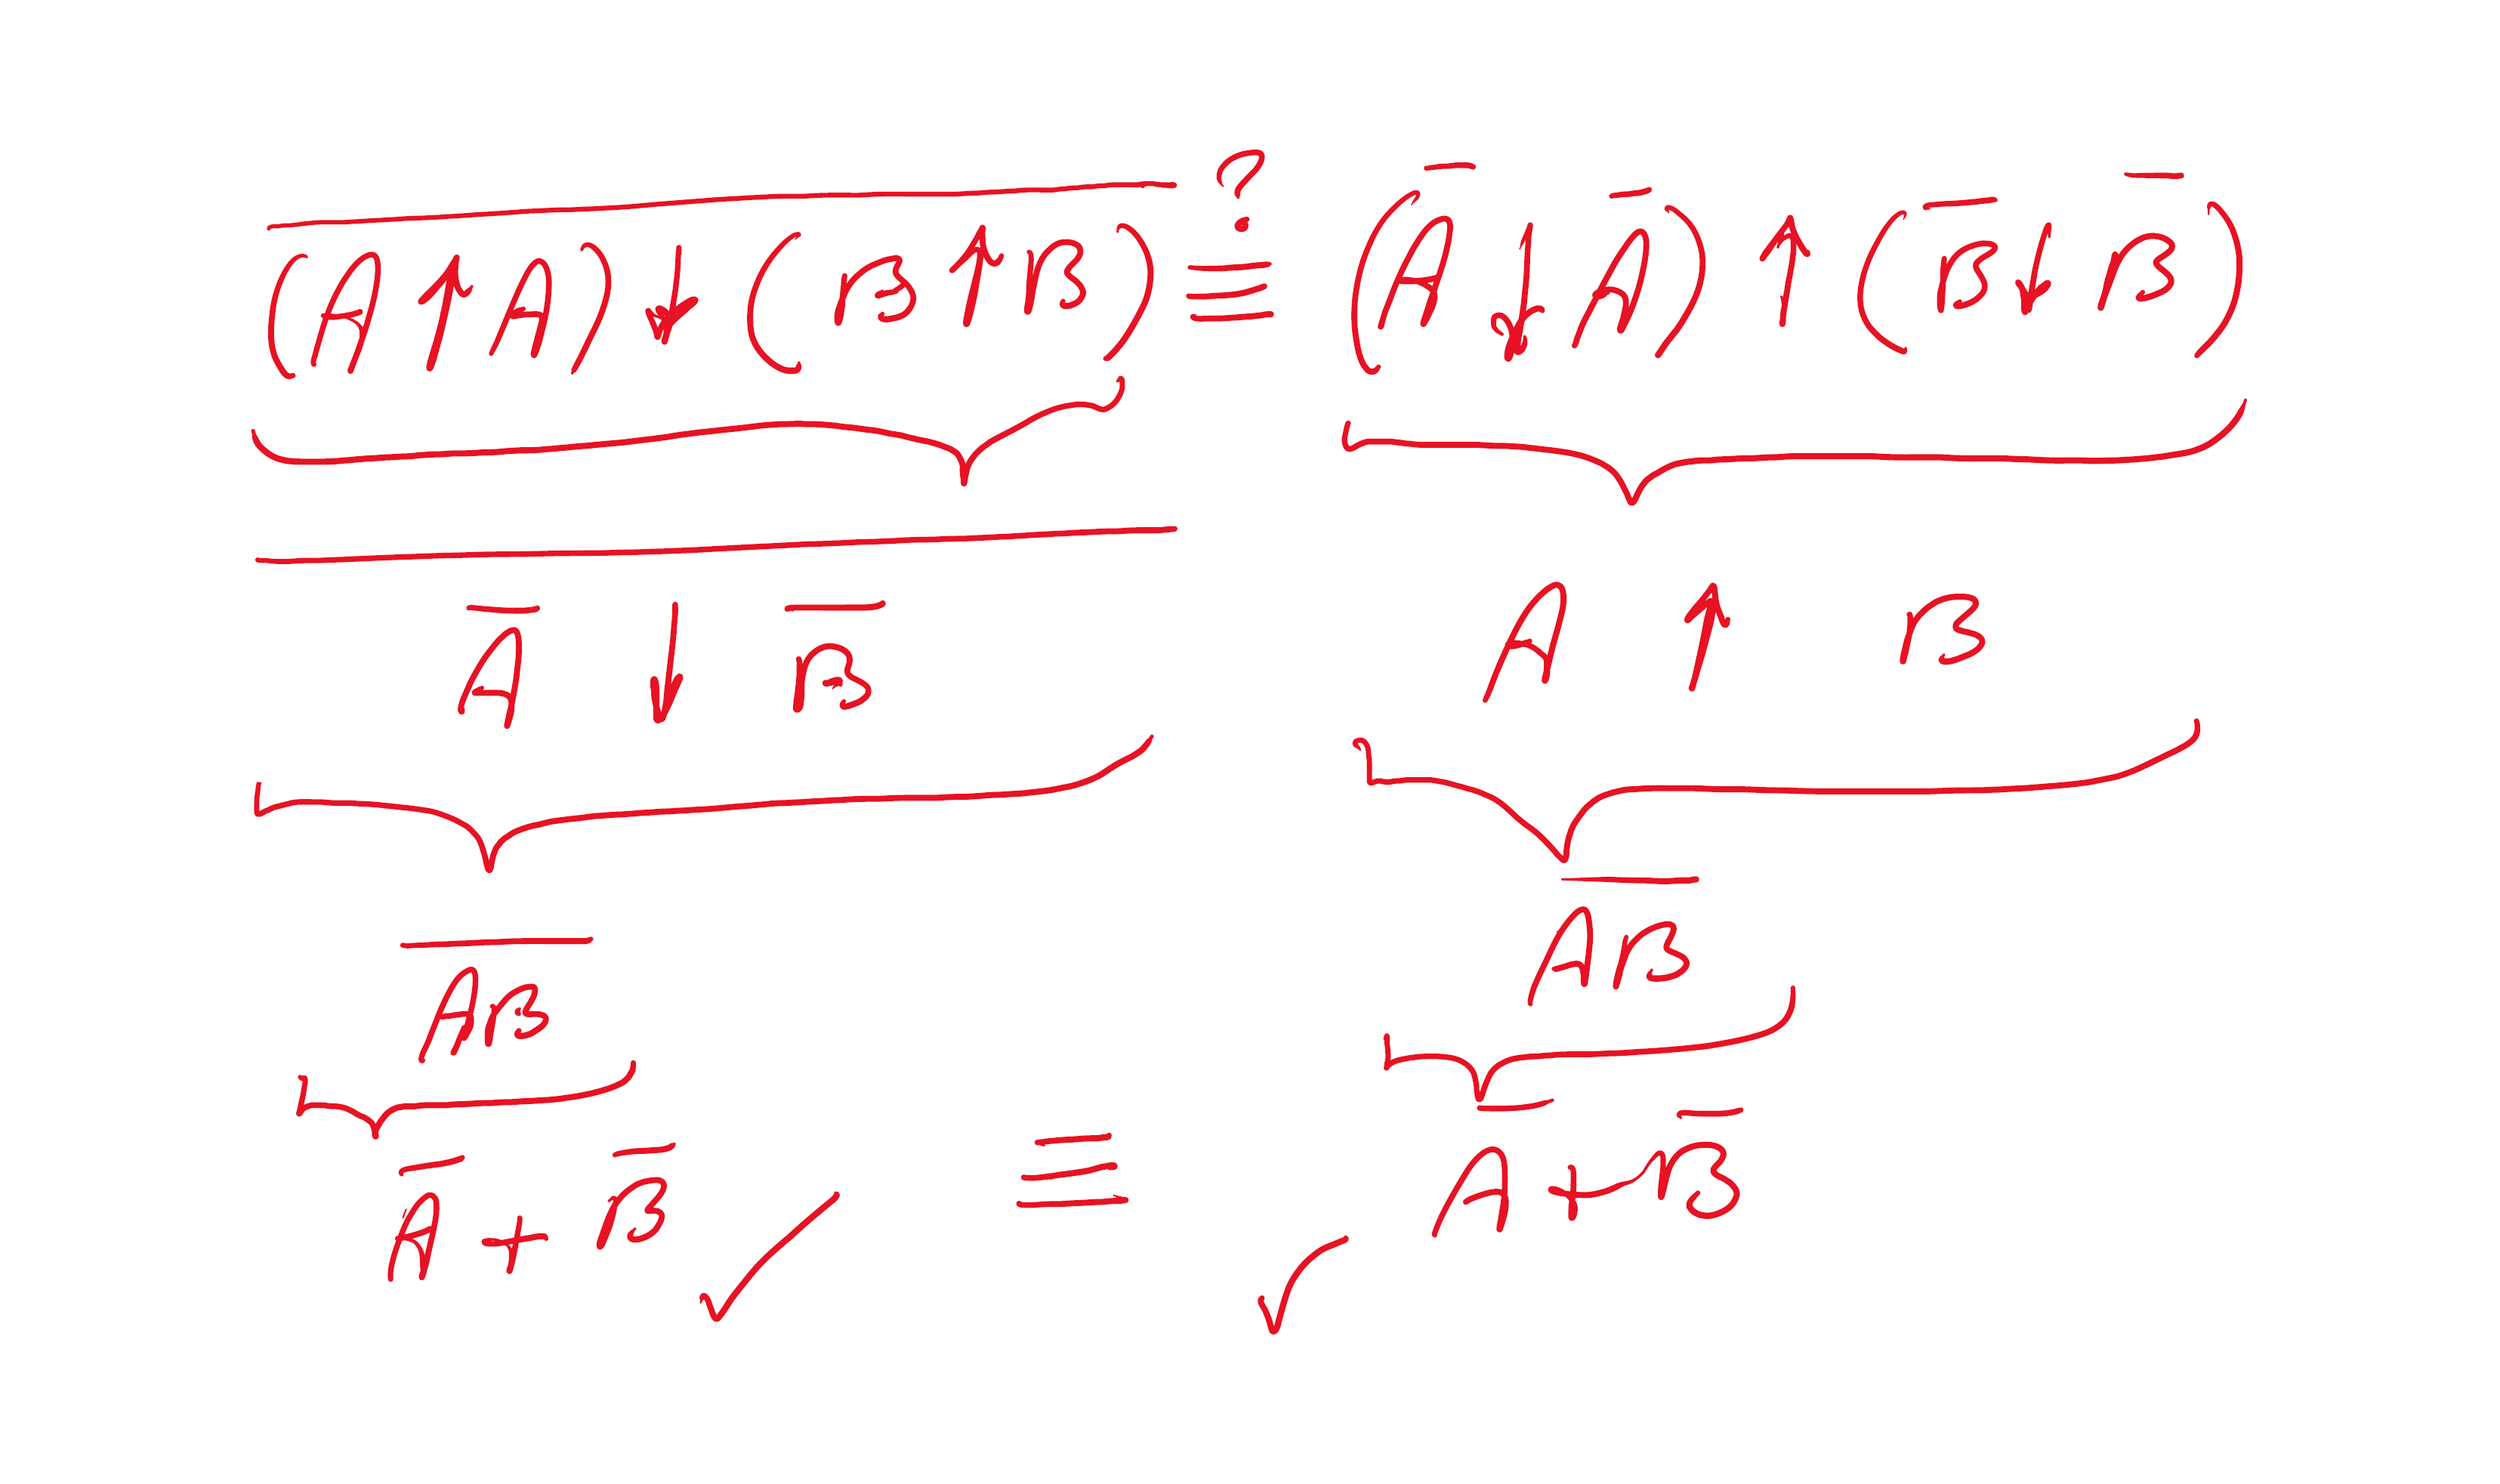 $\overline{(A \uparrow A) \downarrow (B \uparrow B)} \overset{?}{\equiv} (\overline{A} \downarrow \overline{A}) \uparrow (\overline{B} \downarrow \overline{B})$
$\overline{\overline{A} \downarrow \overline{B}}$ $A \uparrow B$
$\overline{AB}$ $\overline{AB}$
$\overline{A} + \overline{B}$ ✓ $\equiv$ ✓ $\overline{A} + \overline{B}$